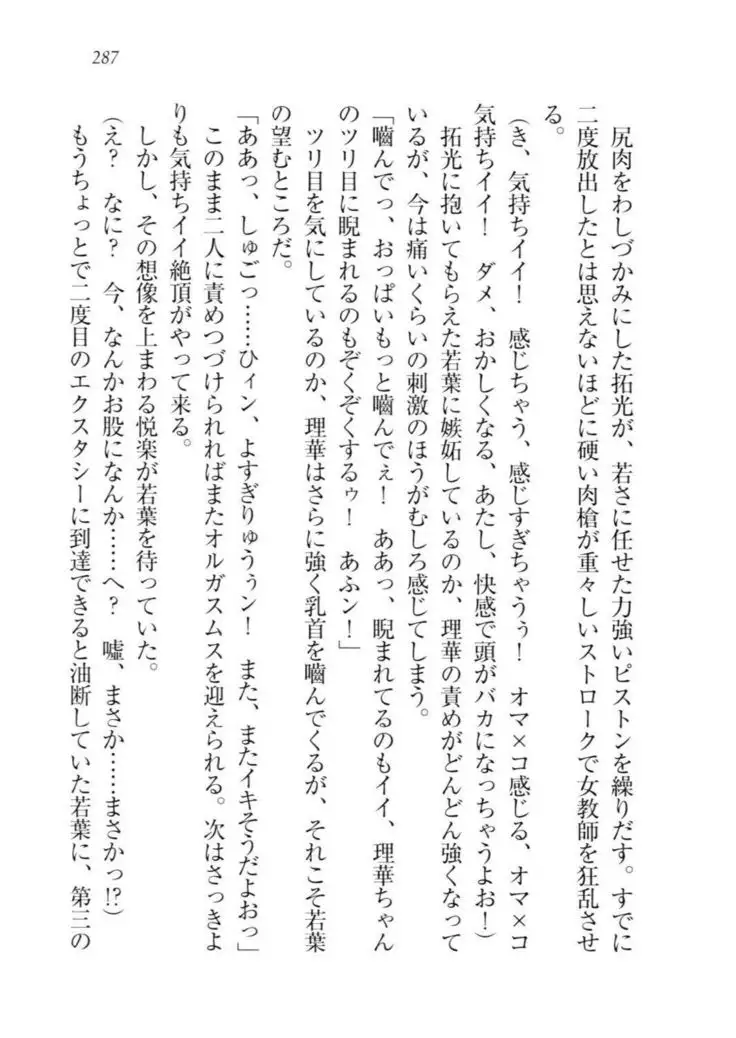 287
尻肉をわしづかみにした拓光が、若さに任せた力強いピストンを繰りだす。すでに
二度放出したとは思えないほどに硬い肉槍が重々しいストロークで女教師を狂乱させ
る。
(き、気持ちイイ!　感じちゃう、感じすぎちゃうぅ!　オマ×コ感じる、オマ×コ
気持ちイイ!　ダメ、おかしくなる、あたし、快感で頭がバカになっちゃうよお!)
拓光に抱いてもらえた若葉に嫉妬しているのか、理華の責めがどんどん強くなって
いるが、今は痛いくらいの刺激のほうがむしろ感じてしまう。
「嚙んでっ、おっぱいもっと嚙んでぇ!　ああっ、睨まれてるのもイイ、理華ちゃん
のツリ目に睨まれるのもぞくぞくするゥ!　あふン!」
ツリ目を気にしているのか、理華はさらに強く乳首を嚙んでくるが、それこそ若葉
の望むところだ。
「ああっ、しゅごっ……ひィン、よすぎりゅうぅン!　また、またイキそうだよおっ」
このまま二人に責めつづけられればまたオルガスムスを迎えられる。次はさっきよ
りも気持ちイイ絶頂がやって来る。
しかし、その想像を上まわる悦楽が若葉を待っていた。
(え?　なに?　今、なんかお股になんか……へ?　嘘、まさか……まさかっ!?)
もうちょっとで二度目のエクスタシーに到達できると油断していた若葉に、第三の